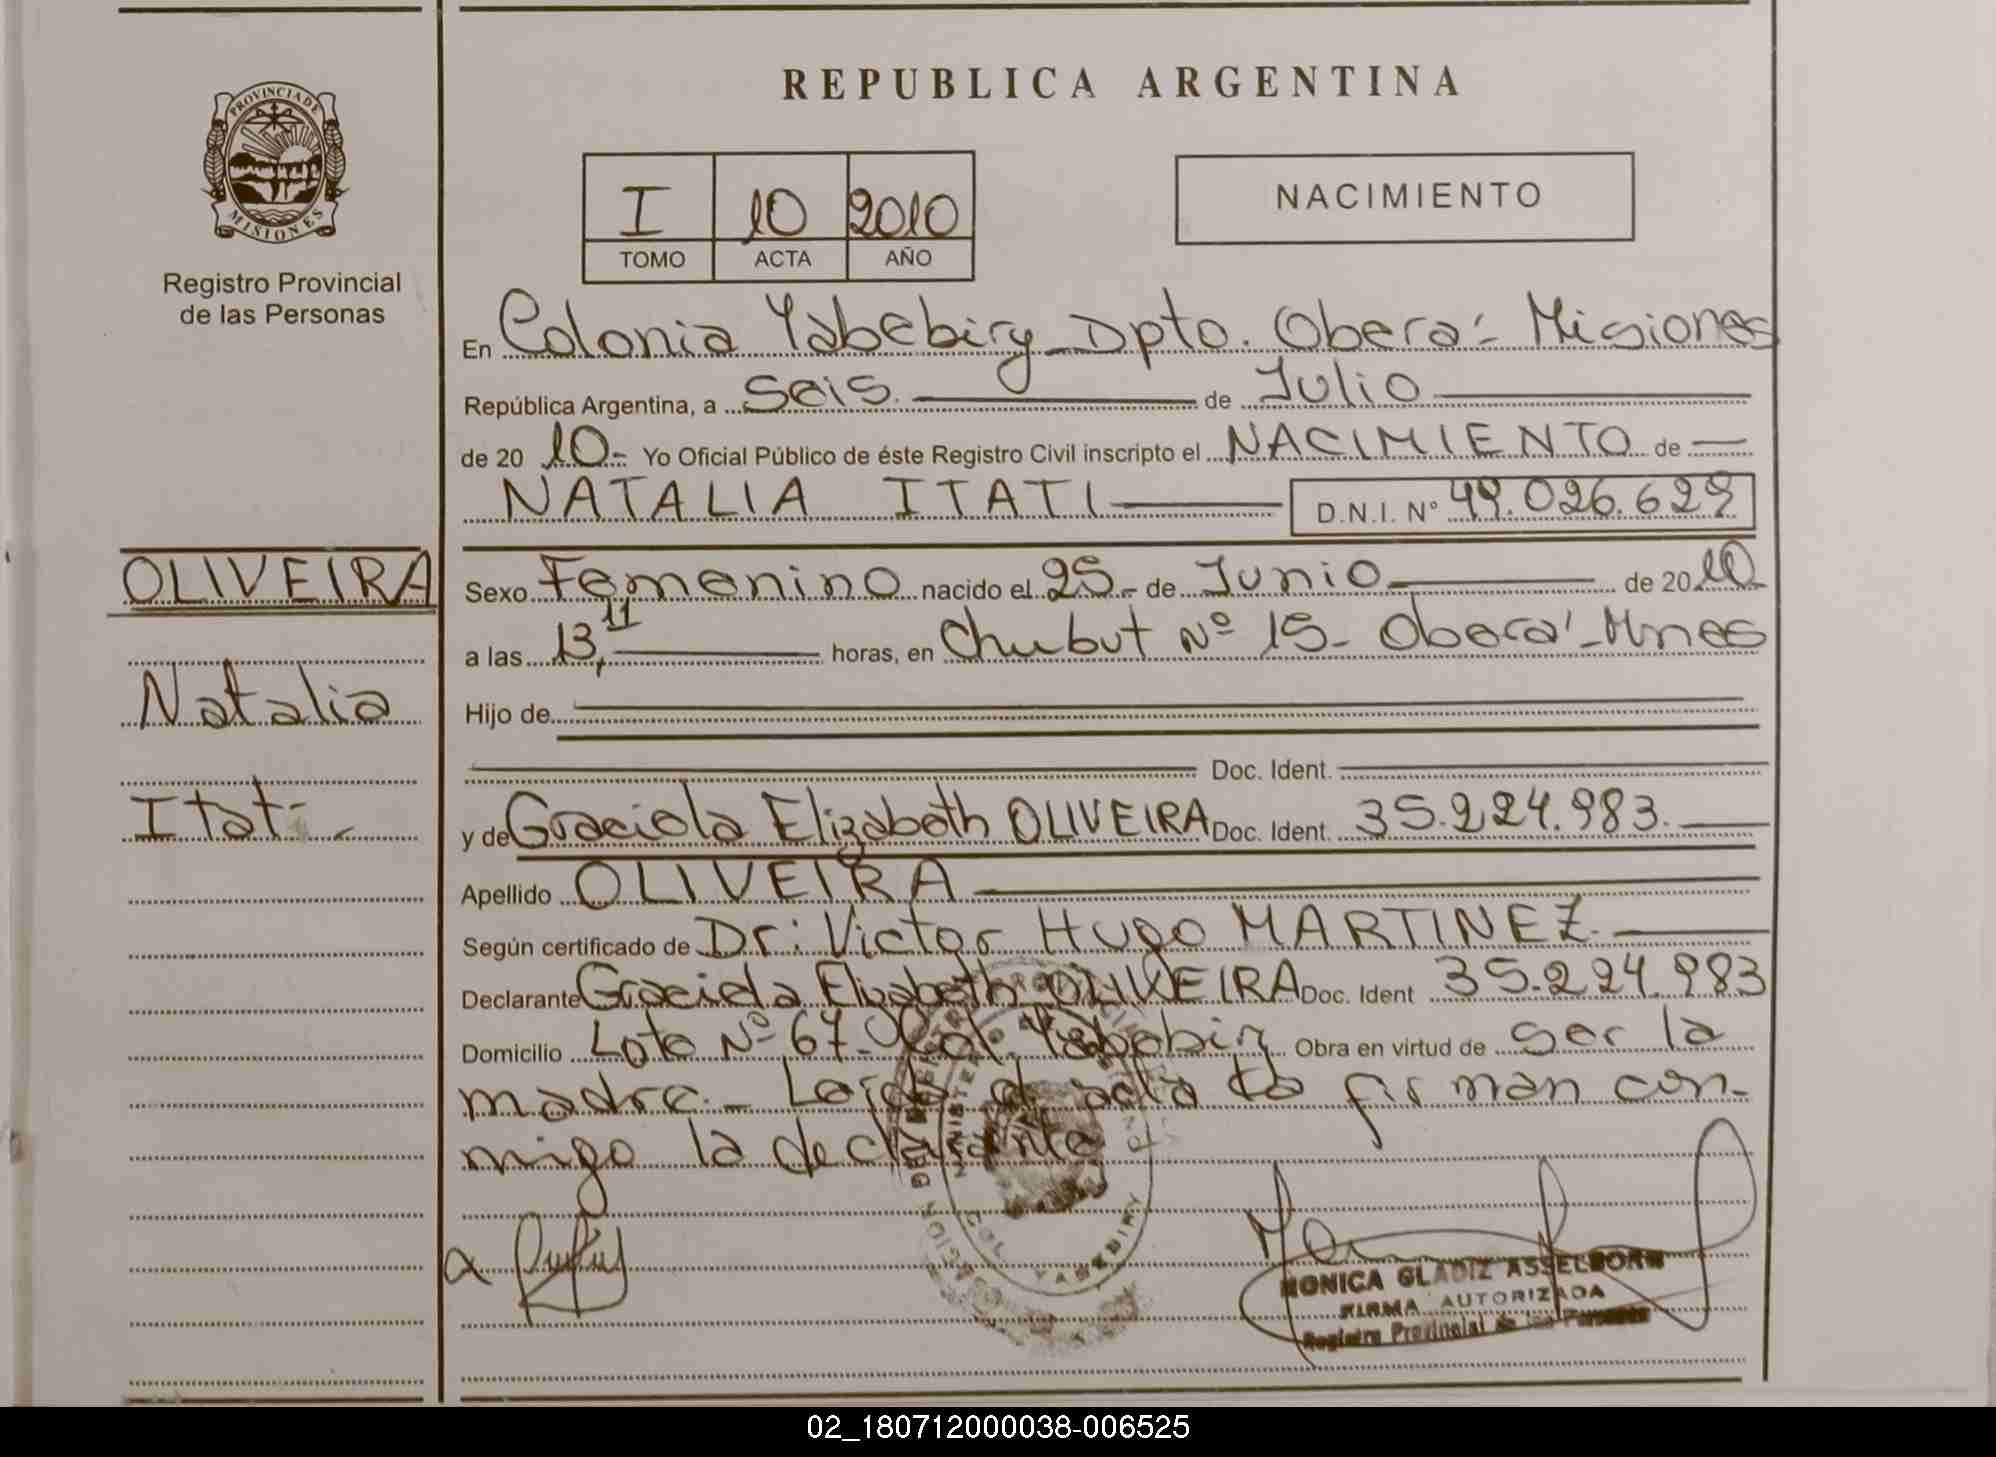 PROVINCIA DE
MISIONES
Registro Provincial
de las Personas
OLIVEIRA
Natalia
Itatí
REPUBLICA ARGENTINA
I 10 2010
TOMO ACTA AÑO
NACIMIENTO
En Colonia Yabebiry - Dpto. Oberá - Misiones
República Argentina, a Seis de Julio
de 20 10.- Yo Oficial Público de éste Registro Civil inscripto el NACIMIENTO de
NATALIA ITATI D.N.I. Nº 49.026.629
Sexo Femenino nacido el 25.- de Junio de 20 10.-
a las 13,11 horas, en Chubut Nº 15 - Oberá - Mnes
Hijo de
Doc. Ident.
y de Graciela Elizabeth OLIVEIRA Doc. Ident. 35.224.983.
Apellido OLIVEIRA
Según certificado de Dr: Victor Hugo MARTINEZ.
Declarante Graciela Elizabeth OLIVEIRA Doc. Ident 35.224.983
Domicilio Lote Nº 67 - Col. Yabebiry Obra en virtud de ser la
madre.- Leída el acta la firman con-
migo la declarante
COL. YABEBIRY
MONICA GLADIZ ASSELBORN
FIRMA AUTORIZADA
Registro Provincial de las Personas
02_180712000038-006525